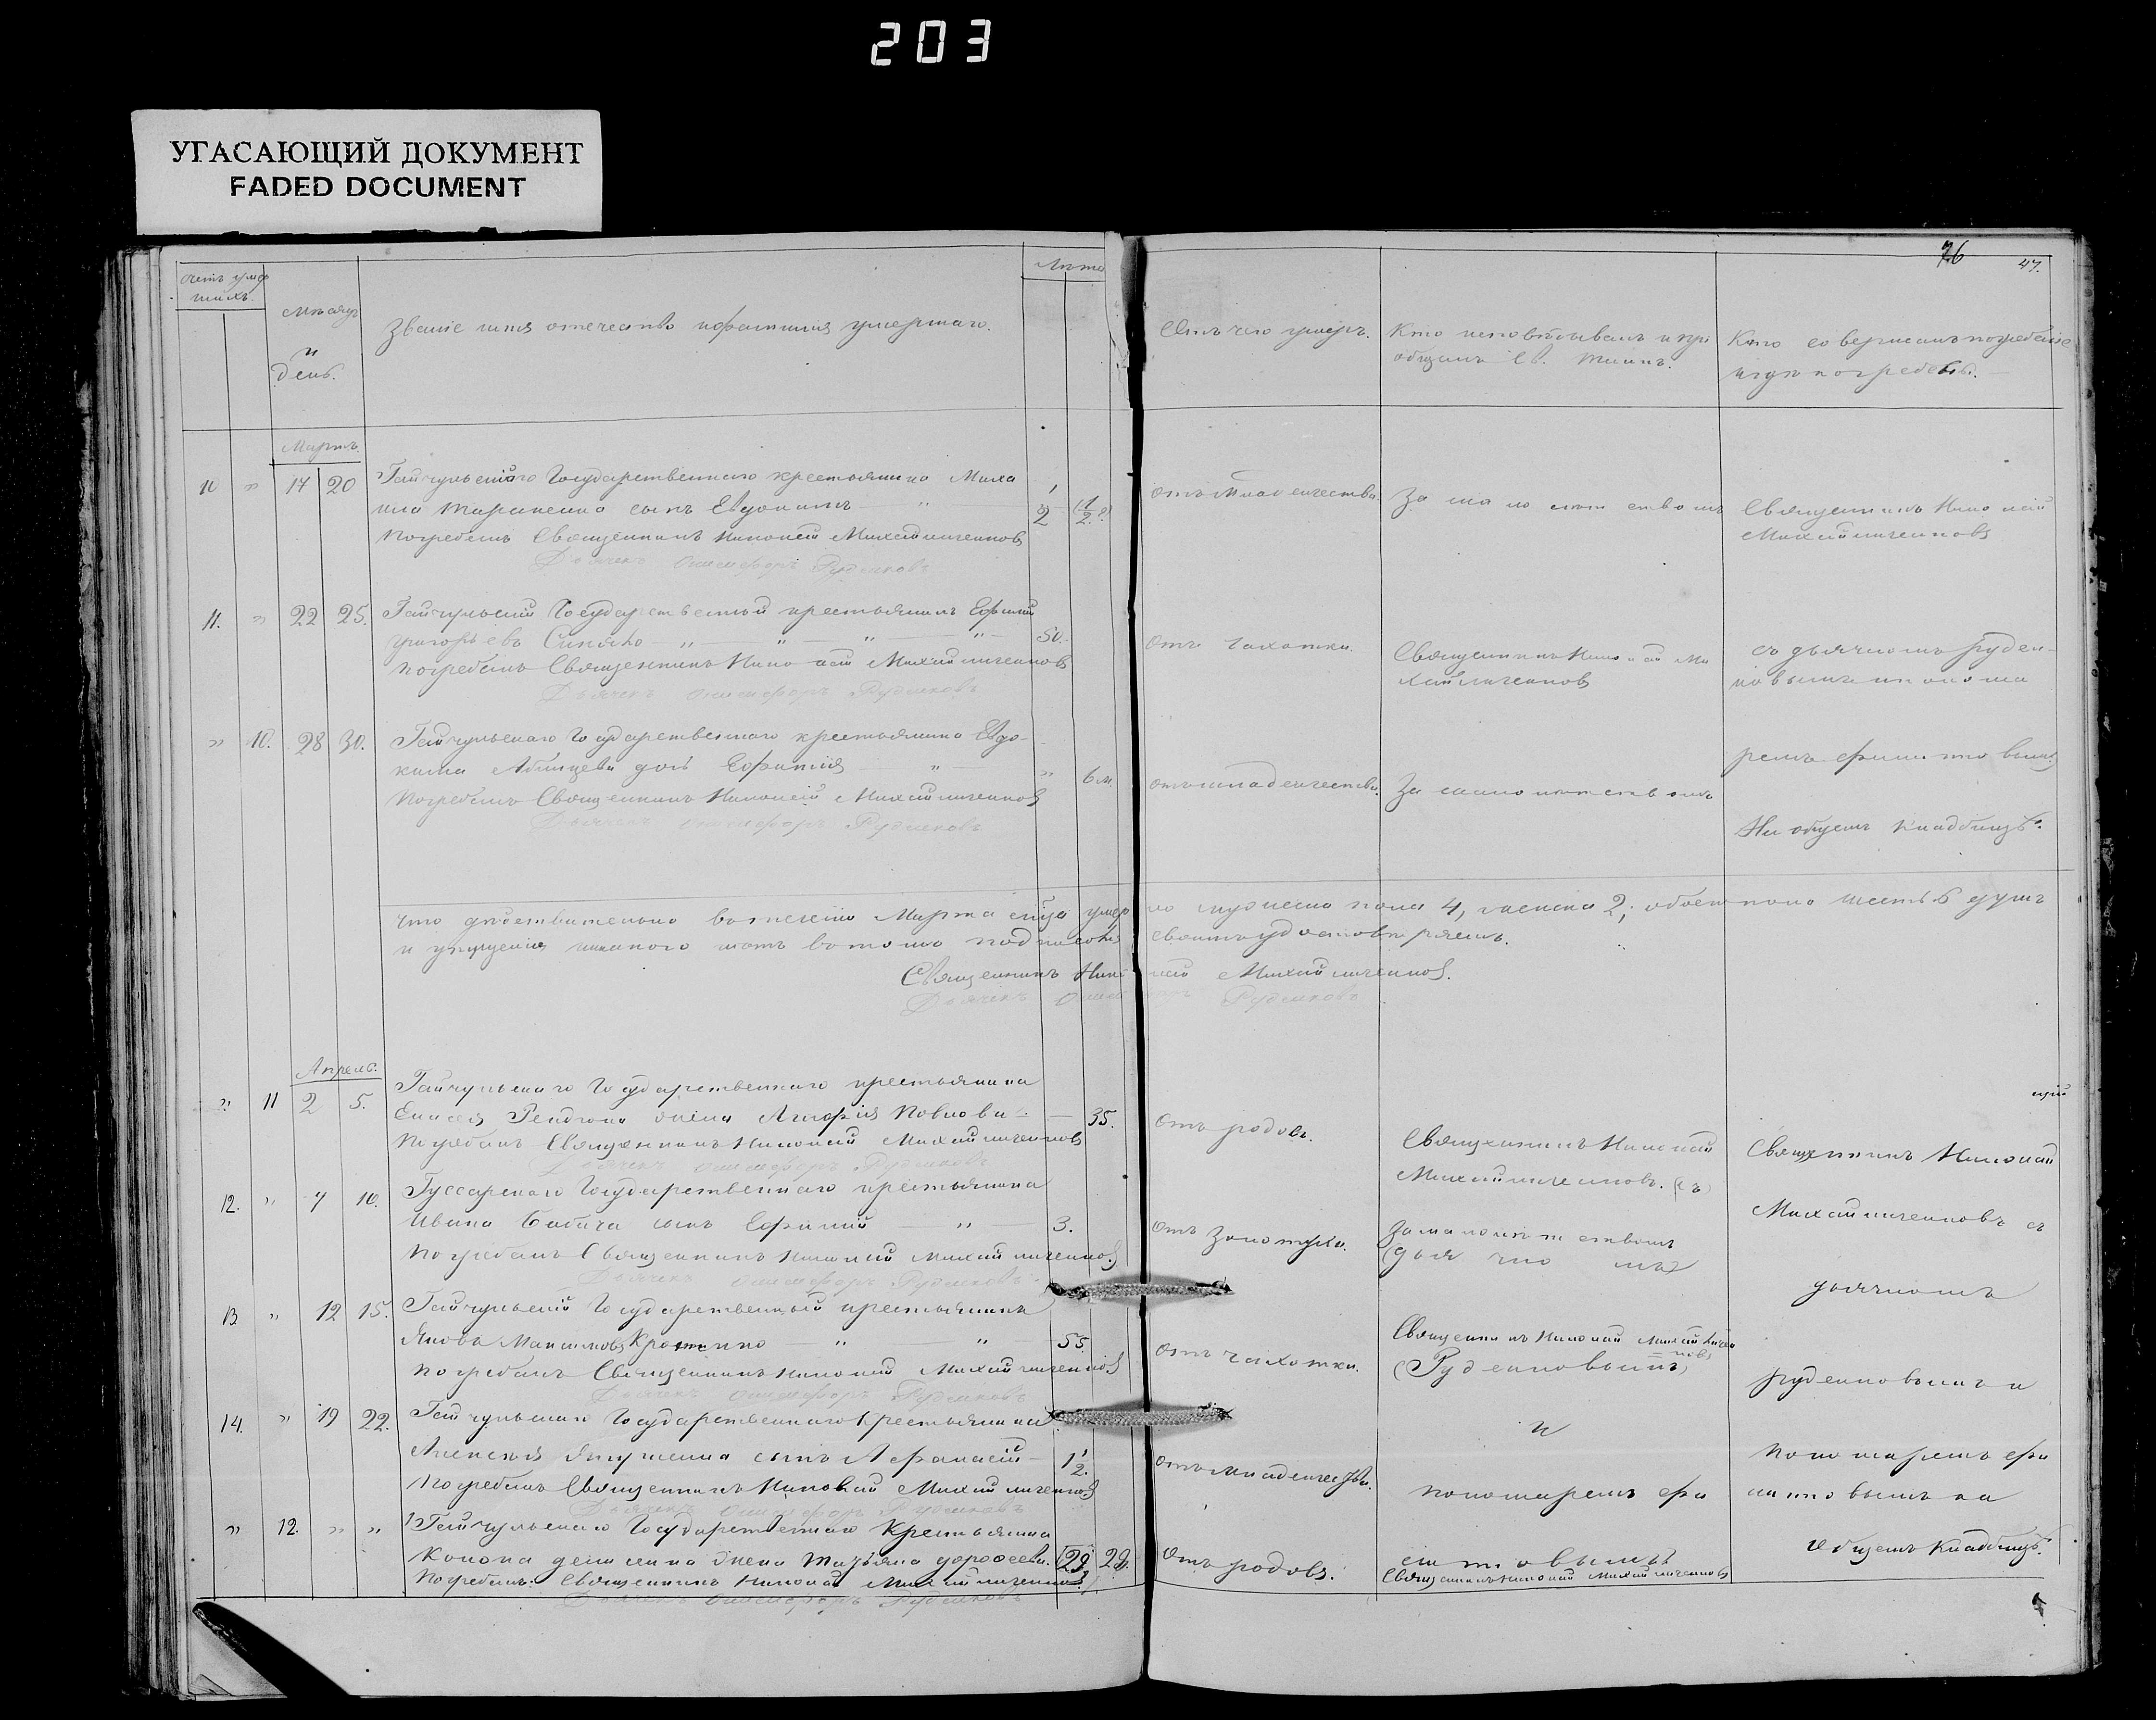 203
УГАСАЮЩИЙ ДОКУМЕНТ
FADED DOCUMENT
76
47.
Лѣта
Счетъ умер
шихъ.
Мѣсяцъ
и
день.
Званіе имя отечество и фамилія умершаго.
Отъ чего умеръ.
Кто исповѣдывалъ и прі
общалъ Св. Таинъ.
Кто совершалъ погребеніе
и гдѣ погребены.
Мартъ
10 " 17 20 Гайчульскаго Государственнаго крестьянина Миха
ила Тараненка сынъ Евдокимъ 2 1/2
отъ младенчества.
За малолѣтствомъ
Священникъ Николай
Михайличенковъ
Погребалъ Священникъ Николай Михайличенковъ
Дьячекъ Руденковъ
11. " 22 25. Гайчульскій Государственный крестьянинъ Ефимій
Григорьевъ Синяко " " " 50.
отъ чахотки.
Священникъ Николай Ми
хайличенковъ
съ дьячкомъ Руден
ковымъ и понома
Погребалъ Священникъ Николай Михайличенковъ
Дьячекъ Руденковъ
" 10. 28 30. Гайчульскаго Государственнаго крестьянина Евдо-
кима дочь Ефимія " " 6 м.
отъ младенчества.
За малолѣтствомъ
ремъ
Погребалъ Священникъ Николай Михайличенковъ
Дьячекъ Руденковъ
На общемъ кладбищѣ.
Что дѣйствительно въ теченіи Марта мца умерло мужеска пола 4, женска 2, обоего пола шесть 6 душъ
и упущенія никакого нѣтъ въ томъ подписомъ своимъ удостовѣряемъ.
Священникъ Николай Михайличенковъ.
Дьячекъ Руденковъ
Апрель.
" 11 2 5. Гайчульскаго Государственнаго крестьянина
жена Павлова. — 35.
отъ родовъ.
Священникъ Николай
Михайличенковъ. (съ)
Священникъ Николай
Погребалъ Священникъ Николай Михайличенковъ
Дьячекъ Руденковъ
12. " 7 10. Гуссарскаго Государственнаго крестьянина
Ивана Бабича сынъ Ефимій — " 3.
отъ золотухи.
За малолѣтствомъ
(дьячкомъ)
Михайличенковъ съ
Погребалъ Священникъ Николай Михайличенковъ.
Дьячекъ Руденковъ
дьячкомъ
13. " 12 15. Гайчульскій Государственный крестьянинъ
Яковъ Максимовъ " " 55
отъ чахотки.
Священникъ Николай Михайличен
ковъ
(Руденковымъ)
Руденковымъ и
Погребалъ Священникъ Николай Михайличенковъ
Дьячекъ Руденковъ
14. " 19 22. Гайчульскаго Государственнаго крестьянина
Алексея сынъ Афанасій 1/2.
отъ младенчества.
и
пономаремъ
пономаремъ
Погребалъ Священникъ Николай Михайличенковъ
Дьячекъ Руденковъ
" 12. " " Гайчульскаго Государственнаго крестьянина
Конона жена Татьяна Дорофеева. [29] 29.
отъ родовъ.
Священникъ Николай Михайличенковъ
общемъ кладбищѣ.
Погребалъ Священникъ Николай Михайличенковъ
Дьячекъ Руденковъ